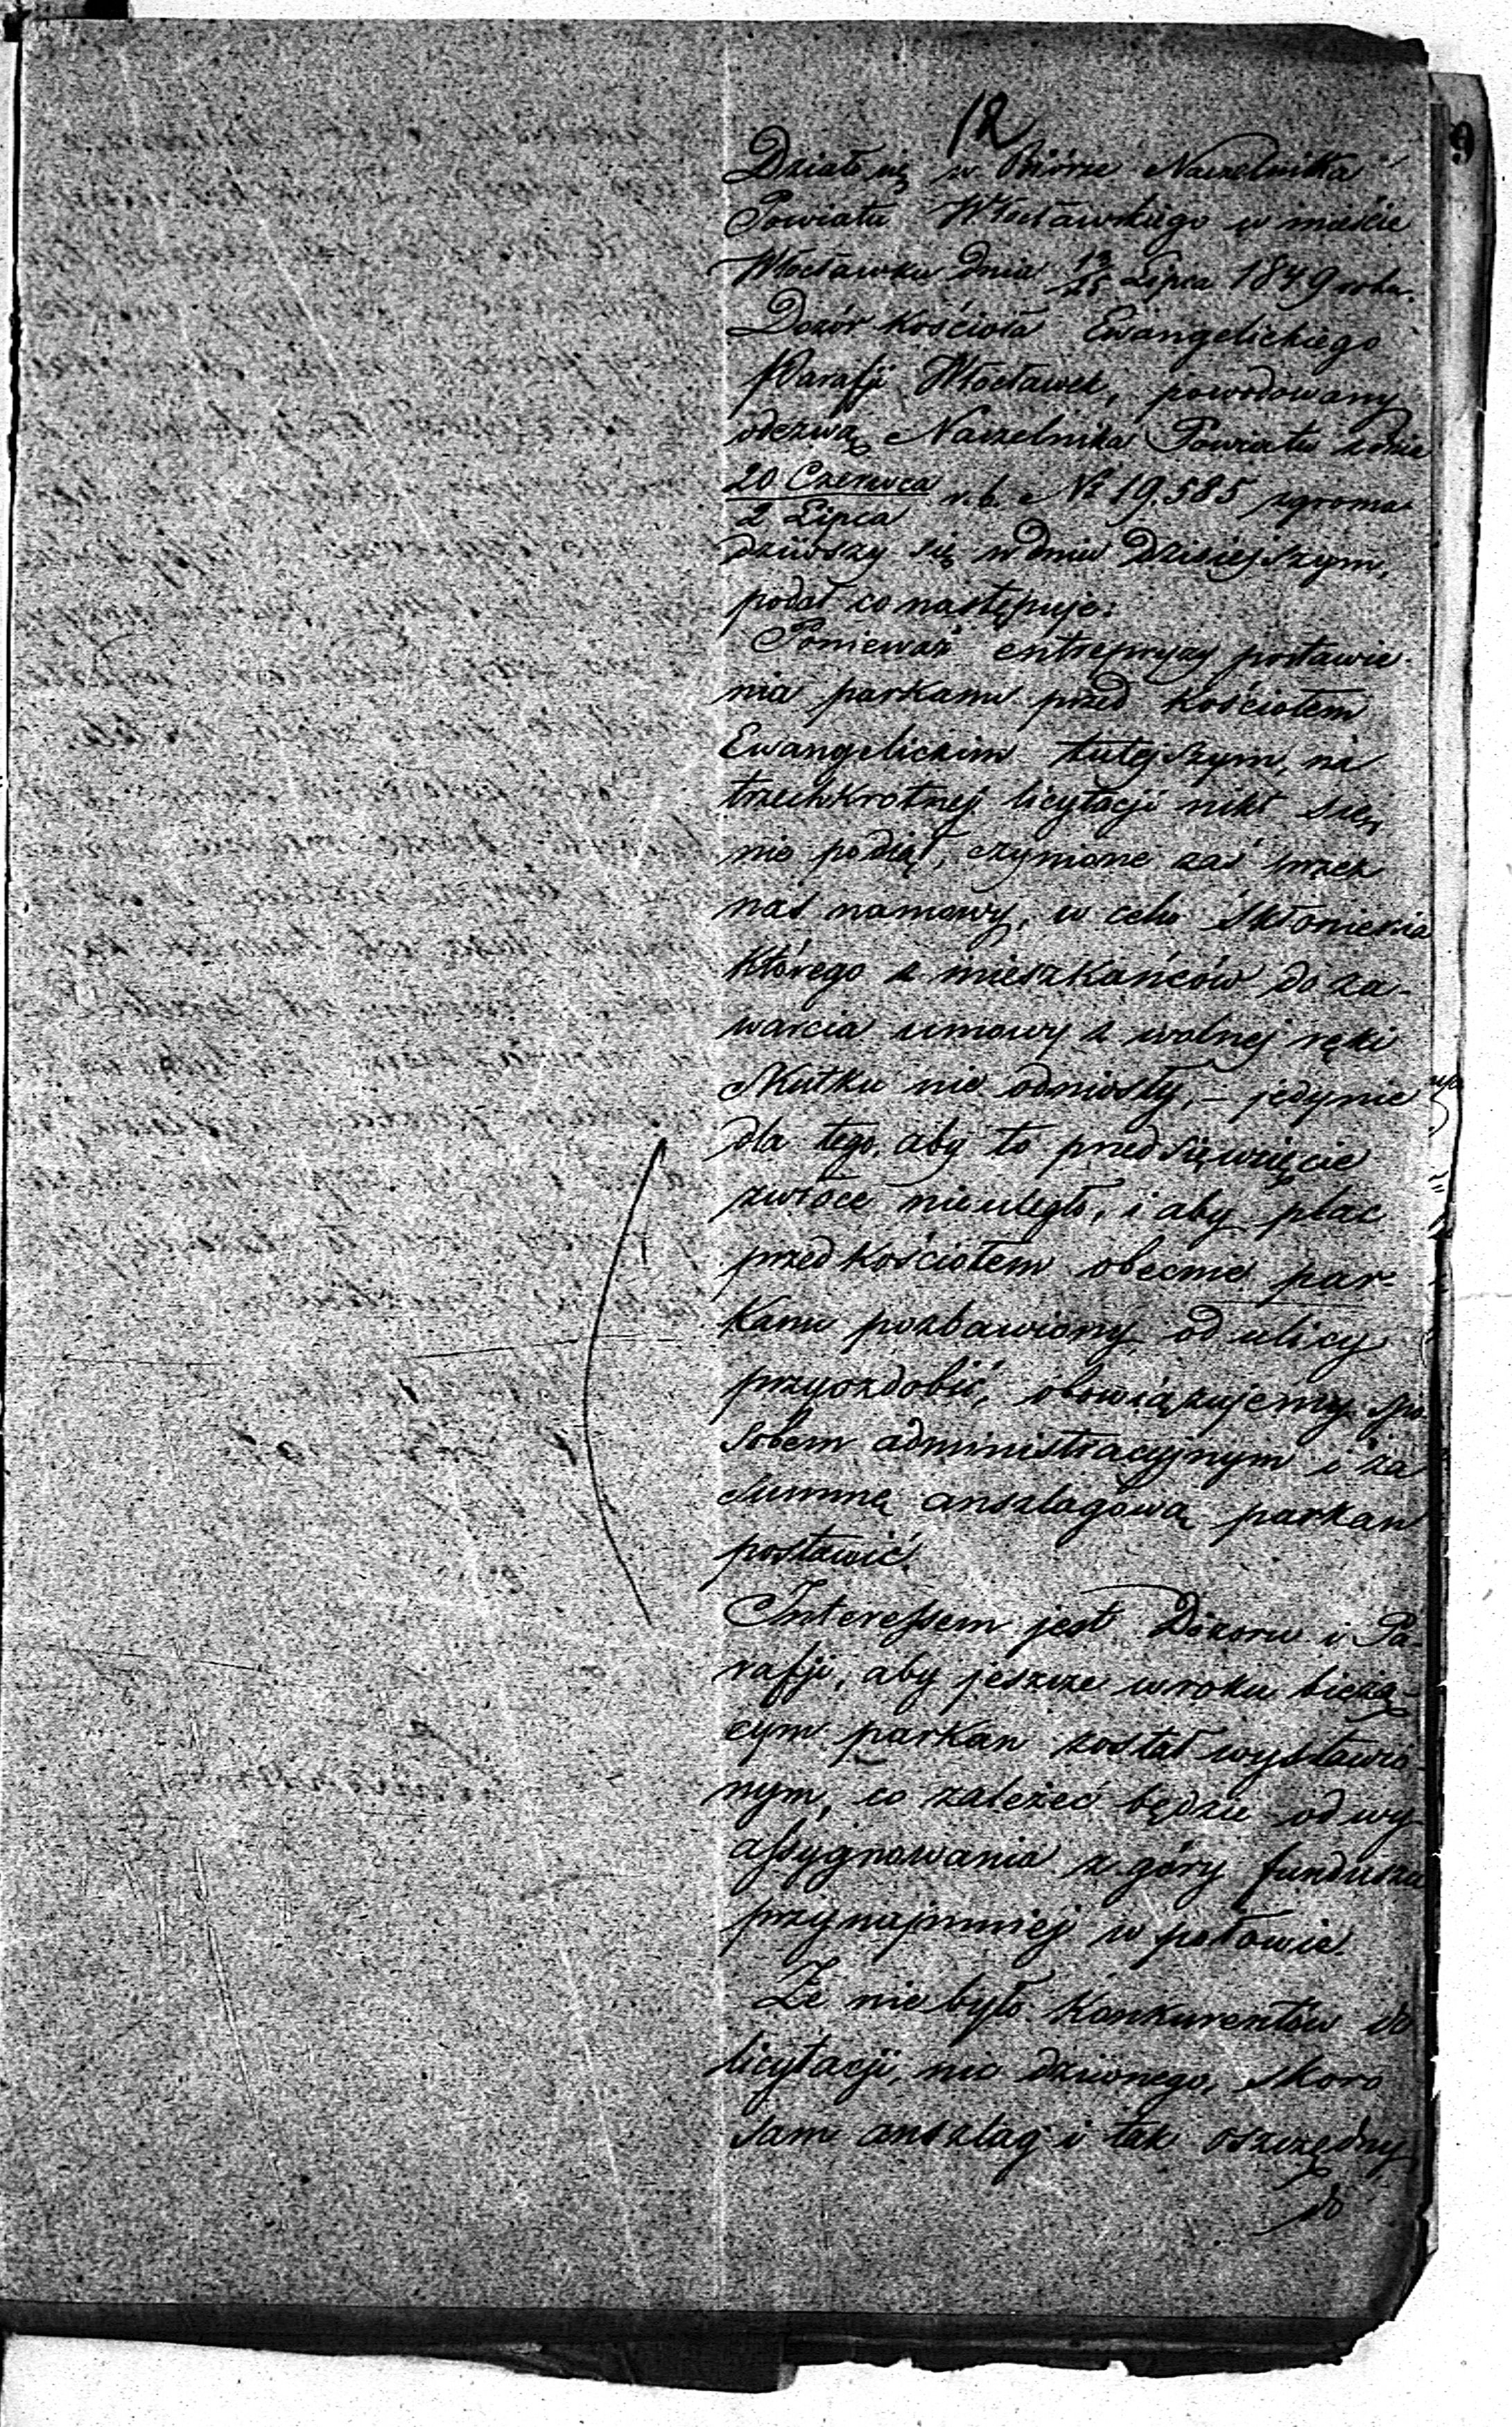 12
9
Działo się w Biórze Naczelnika
Powiatu Włocławskiego w mieście
Włocławku dnia 13/25 Lipca 1849 roku.
Dozór Kościoła Ewangelickiego
Parafji Włocławek, powodowany
odezwą Naczelnika Powiatu z dnia
20 Czerwca / 2 Lipca r. b. Nr 19.585 zgroma-
dziwszy się w dniu dzisiejszym,
podał co następuje:
Ponieważ entrepryzy postawie-
nia parkanu przed kościołem
Ewangelickim tutejszym, na
trzechkrotnej licytacji nikt się
nie podiął, czynione zaś przez
nas namowy, w celu skłonienia
którego z mieszkańców do za-
warcia umowy z wolnej ręki
skutku nie odniosły, – jedynie
dla tego, aby to przedsięwzięcie
zwłoce nie uległo, i aby plac
przed Kościołem obecnie par-
kanu pozbawiony od ulicy
przyozdobić, obowiązujemy spo-
sobem administracyjnym i za
summę anszlagową parkan
postawić.
Interessem jest Dozoru i Pa-
rafji, aby jeszcze w roku bieżą-
cym parkan został wystawio-
nym, co zależeć będzie od wy-
assygnowania z góry funduszu
przynajmniej w połowie.
Że nie było Konkurentów do
licytacji, nic dziwnego, skoro
sam anszlag i tak oszczędny
do